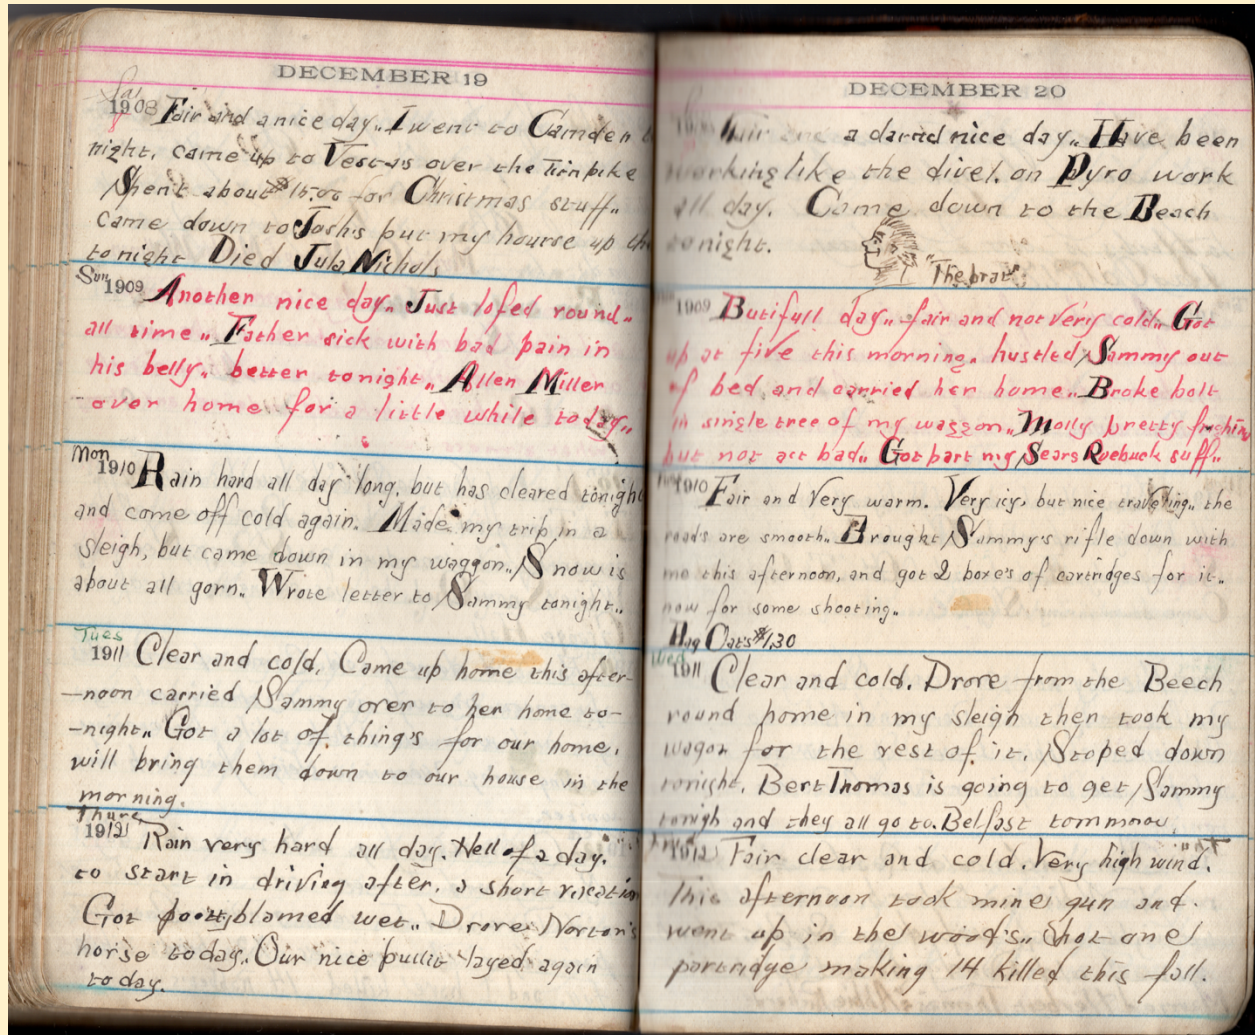 DECEMBER 19
Sat
1908 Fair and a nice day.. I went to Camden
night, came up to Vesta's over the Turnpike
Spent about $15.00 for Christmas stuff..
came down to Josh's put my hourse up
tonight Died Jula Nichols
Sun
1909 Another nice day.. Just lofed round..
all time.. Father sick with bad pain in
his belly.. better tonight.. Allen Miller
over home for a little while today..
Mon
1910 Rain hard all day long, but has cleared tonight
and come off cold again. Made my trip in a
sleigh, but came down in my waggon.. Snow is
about all gorn. Wrote letter to Sammy tonight..
Tues
1911 Clear and cold. Came up home this after-
-noon carried Sammy over to her home to-
-night.. Got a lot of thing's for our home,
will bring them down to our house in the
morning.
Thurs
1912 Rain very hard all day. Hell of a day.
to start in driving after, a short vacation
Got blamed wet.. Drove Norton's
horse today.. Our nice pullit layed again
today.
DECEMBER 20
Fair and a darnd nice day.. Have been
working like the divel, on Pyro work
all day. Came down to the Beach
tonight.
"The brat"
1909 Butifull day.. fair and not very cold.. Got
up at five this morning.. hustled Sammy out
of bed and carried her home.. Broke bolt
in single tree of my waggon.. Molly pretty
but not act bad.. Got part my Sears Roebuck suff..
1910 Fair and very warm. Very icy, but nice traveling.. the
roads are smooth.. Brought Sammy's rifle down with
me this afternoon, and got 2 boxe's of cartridges for it..
now for some shooting..
Bag Oats $1.30
Wed
1911 Clear and cold. Drove from the Beech
round home in my sleigh then took my
wagon for the rest of it. Stoped down
tonight. Bert Thomas is going to get Sammy
tonigh and they all go to Belfast tommrow.
1912 Fair clear and cold. Very high wind.
This afternoon took mine gun and
went up in the wood's.. Shot one
partridge making 14 killed this fall.